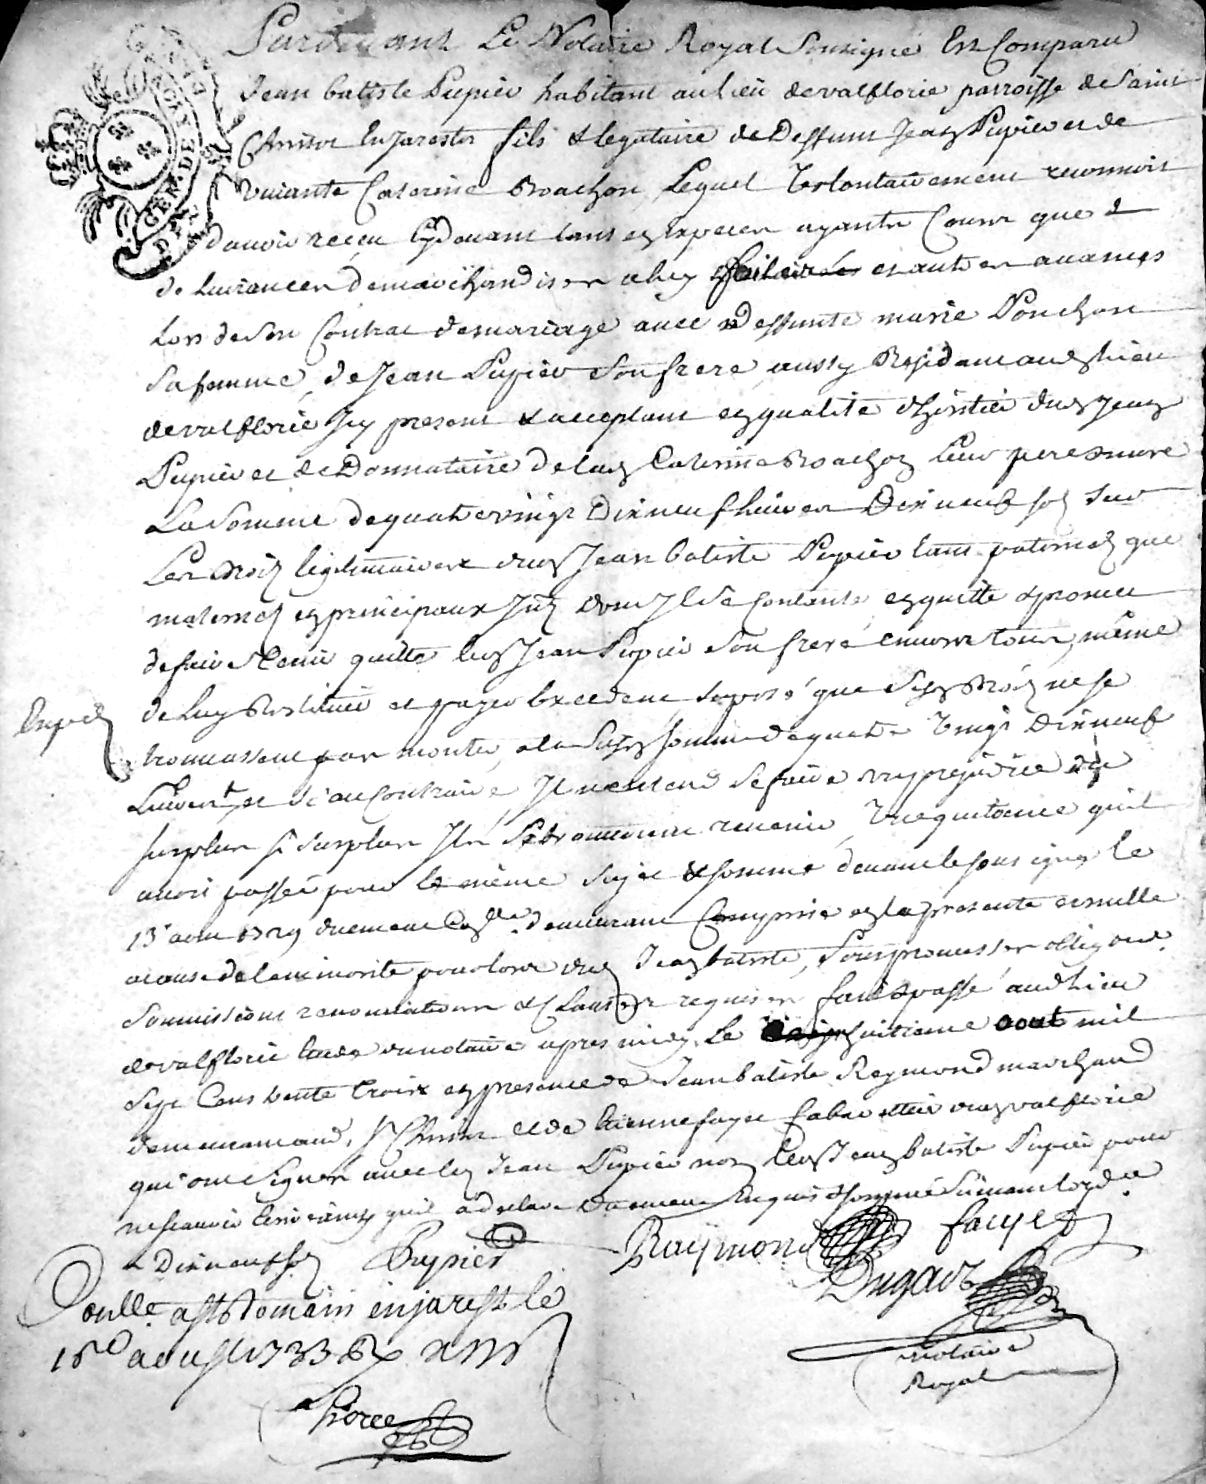 GEN. DE
Pardevant Le Notaire Royal Soussigné Est Comparu
Jean batiste Pupier habitant au lieu devalflorie parroisse de Saint
Christot En Jarest fils & legataire de Deffunt Jean Pupier et de
vivante Caterine Brachon Lequel volontairement reconnoit
d'avoir reçeu Cydevant tant en Especes ayants Cours que
de Livrances de marchandises a luy faites et autres avances
Lors de Son Contrat de mariage avec deffunte marie Ponchon
Sa femme, de Jean Pupier Son frere aussy Residant aud lieu
devalflorie Icy present & acceptant en qualité d'heritier dud Jean
Pupier et de Donnataire de lad Caterine Brachon leur pere & mere
La Somme de quatre vingt Dix neuf livres Dix neuf sols Sur
Les droits legitimaires dud Jean batiste Pupier tant paternels que
maternels en principaux Dont Il Se Contente, en quitte & promet
de faire Tenir quitte led Jean Pupier Son frere envers tous, même
de Luy Restituer et payer l'excedent Suposé que Sesd Droits ne Se
trouvassent pas monter a la Susd Somme de quatre vingt Dix neuf
Livres et Si au Contraire Il n'entend Se faire prejudice du
Surplus Si Surplus Il Se trouve revenir, une quitance qu'il
auoit passée pour le même Sujet & Somme devant le sous signé le
13 aout 1729 demeurant Comprise en la presente et nulle
a cause de la minorité pour lors dud Jean batiste, Sous promesses obligons
Soumissions renonciations & Clauses requises fait & passé aud lieu
devalflorie Etude du notaire apres midy Le huitieme aout mil
Sept Cens trente trois en presence de Jean batiste Raymond marchand
demeurant aud St Christot et de Etienne fayet Cabarettier dud valflorie
qui ont Signé avec led Jean Pupier non led Jean batiste Pupier pour
ne Scavoir Ecrire ainsy qu'il a declaré Enquis & Sommé Suivant lord.ce
Dix neuf sols
Pupier
Raÿmond
fayet
Dugas
notaire
Royal
Conllé a St Romain en jarest le
16e aoust 1733